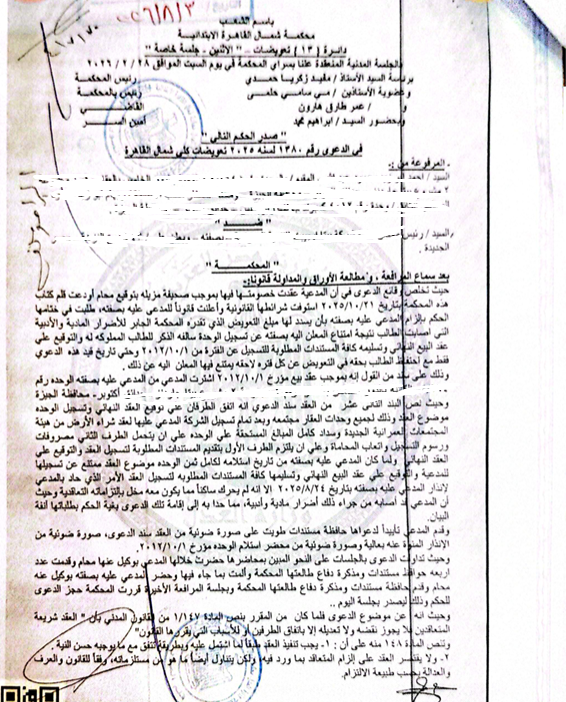 باسم الشعب
محكمة شمال القاهرة الابتدائية
دائرة ( ١٣ ) تعويضات – " الاثنين – جلسة خاصة "
بالجلسة المدنية المنعقدة علنا بسراي المحكمة في يوم السبت الموافق ٢٠٢٦/٢/٢٨
برئاسة السيد الأستاذ / مفيد زكريا حمدي رئيس المحكمة
وعضوية الأستاذين / سامي حلمى رئيس بالمحكمة
و / عمر طارق هارون القاضي
وبحضور السيد / ابراهيم محمد أمين السر
" صدر الحكم التالى "
في الدعوى رقم ١٣٨٠ لسنة ٢٠٢٥ تعويضات كلى شمال القاهرة
المرفوعة من :-
السيد / احمد
" ضد "
السيد / رئيس بصفته
الجديدة
" المحكمة "
بعد سماع المرافعة ، ومطالعة الأوراق والمداولة قانونا:-
حيث تخلص وقائع الدعوى في أن المدعية عقدت خصومتها فيها بموجب صحيفة مزيله بتوقيع محام أودعت قلم كتاب
هذه المحكمة بتاريخ ٢٠٢٥/١٠/٢١ استوفت شرائطها القانونية وأعلنت قانوناً للمدعي عليه بصفته، طلبت في ختامها
الحكم بإلزام المدعى عليه بصفته بأن يسدد لها مبلغ التعويض الذي تقدره المحكمة الجابر للأضرار المادية والأدبية
التي اصابت الطالب نتيجة امتناع المعلن اليه بصفته عن تسجيل الوحدة سالفه الذكر للطالب المملوكه له والتوقيع علي
عقد البيع النهائي وتسليمه كافة المستندات المطلوبة للتسجيل عن الفترة من ٢٠١٢/١٠/١ وحتي تاريخ قيد هذه الدعوي
فقط مع احتفاظ الطالب بحقه في التعويض عن كل فتره لاحقه يمتنع فيها المعلن اليه عن ذلك .
وذلك على سند من القول إنه بموجب عقد بيع مؤرخ ٢٠١٢/١٠/١ اشترت المدعي من المدعي عليه بصفته الوحده رقم
أكتوبر- محافظة الجيزة
وحيث نص البند الثانى عشر من العقد سند الدعوي انه اتفق الطرفان علي توقيع العقد النهائي وتسجيل الوحدة
موضوع العقد وذلك لجميع وحدات العقار مجتمعه وبعد تمام تسجيل الشركة المدعي عليها لعقد شراء الأرض من هيئة
المجتمعات العمرانية الجديدة وسداد كامل المبالغ المستحقة علي الوحده علي ان يتحمل الطرف الثاني مصروفات
ورسوم التسجيل واتعاب المحاماة وعلي ان يلتزم الطرف الأول بتقديم المستندات المطلوبة لتسجيل العقد والتوقيع علي
العقد النهائي ولما كان المدعي عليه بصفته من تاريخ استلامه لكامل ثمن الوحده موضوع العقد ممتنع عن تسجيلها
للمدعية والتوقيع علي عقد البيع النهائي وتسليمها كافة المستندات المطلوبه لتسجيل العقد الأمر الذي حاد بالمدعي
لانذار المدعي عليه بصفته بتاريخ ٢٠٢٥/٨/٢٤ الا إنه لم يحرك ساكناً مما يكون معه مخل بإلتزاماته التعاقدية وحيث
أن المدعي قد أصابه من جراء ذلك أضرار مادية وأدبية، مما حدا به إلى إقامة تلك الدعوى بغية الحكم بطلباتها آنفة
البيان.
وقدم المدعي تأييداً لدعواها حافظة مستندات طويت على صورة ضوئية من العقد سند الدعوى، صورة ضوئية من
الإنذار المنوه عنه بعالية وصورة ضوئية من محضر استلام الوحده مؤرخ ٢٠١٧/١٠/١.
وحيث تداولت الدعوى بالجلسات على النحو المبين بمحاضرها حضرت خلالها المدعي بوكيل عنها محام وقدمت عدد
اربعه حوافظ مستندات ومذكرة دفاع طالعتها المحكمة وألمت بما جاء فيها وحضر المدعي عليه بصفته بوكيل عنه
محام وقدم حافظة مستندات ومذكرة دفاع طالعتها المحكمة وبجلسة المرافعة الأخيرة قررت المحكمة حجز الدعوى
للحكم وذلك ليصدر بجلسة اليوم ..
وحيث انه عن موضوع الدعوى فلما كان من المقرر بنص المادة ١/١٤٧ من القانون المدني بأن " العقد شريعة
المتعاقدين فلا يجوز نقضه ولا تعديله إلا باتفاق الطرفين أو للأسباب التي يقررها القانون"
وتنص المادة ١٤٨ منه على أن : ١- يجب تنفيذ العقد طبقاً لما اشتمل عليه وبطريقة تتفق مع ما يوجبه حسن النية .
٢- ولا يقتصر العقد على إلزام المتعاقد بما ورد فيه، ولكن يتناول أيضاً ما هو من مستلزماته، وفقاً للقانون والعرف
والعدالة بحسب طبيعة الالتزام.